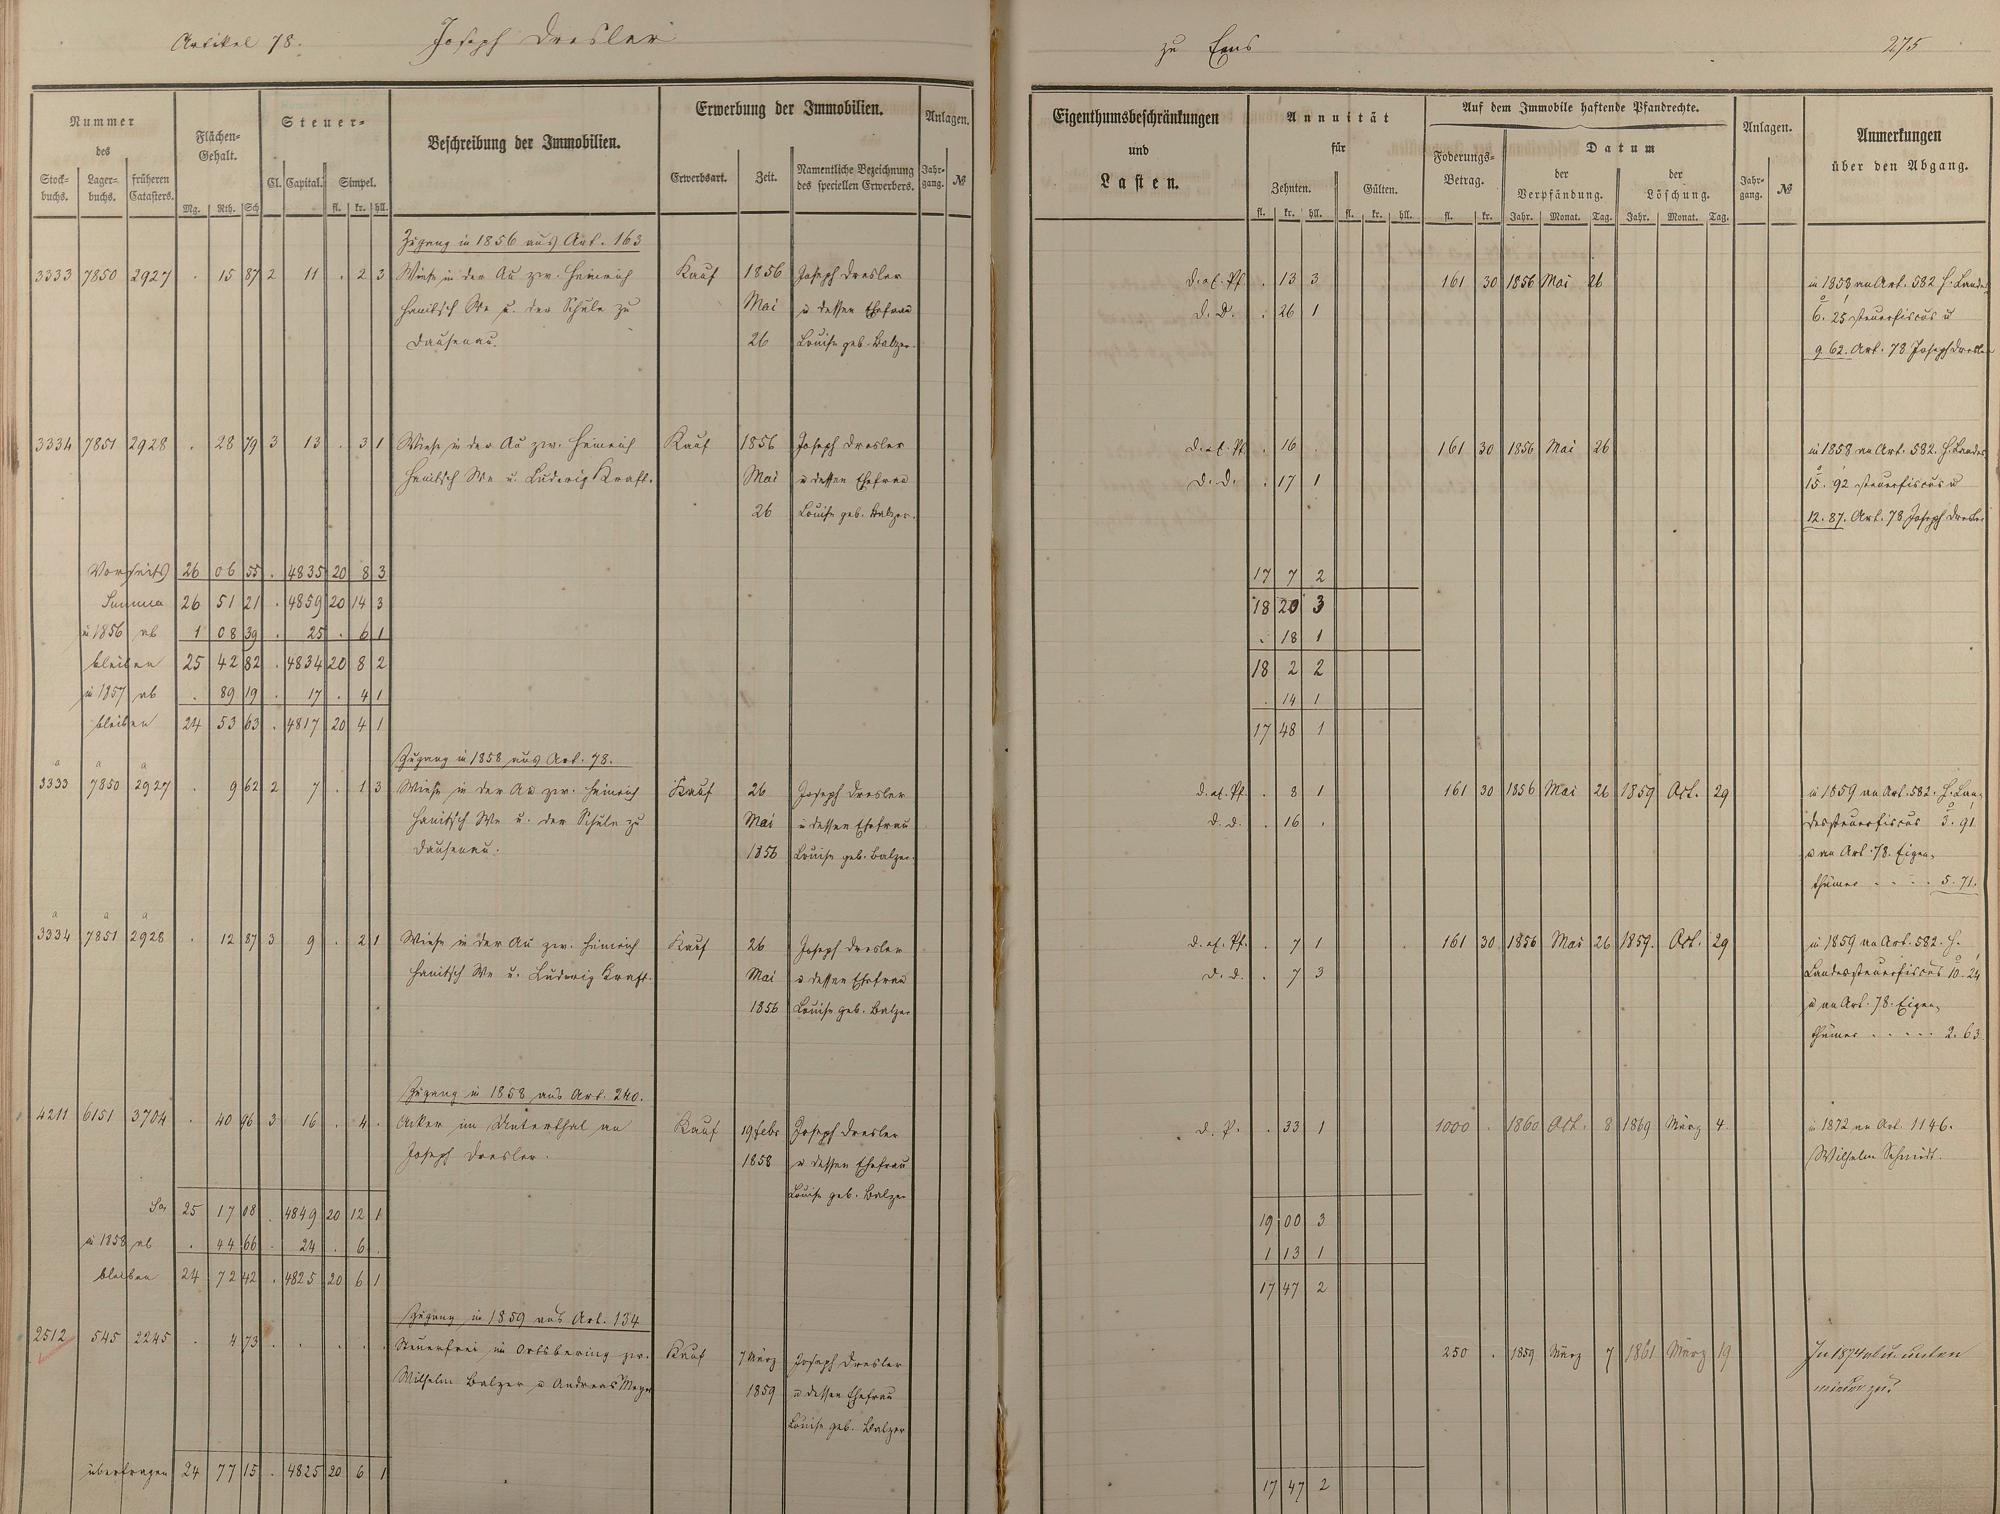 Artikel 78. Joseph Dresler zu Ems 275
Nummer des
Stockbuchs. Lagerbuchs. früheren Catasters.
Flächen-Gehalt.
Mg. Rth. Sch
Steuer-
Cl. Capital. Simpel.
fl. kr. hll.
Beschreibung der Immobilien.
Erwerbung der Immobilien.
Erwerbsart. Zeit. Namentliche Bezeichnung des speciellen Erwerbers.
Anlagen.
Jahrgang. №
Eigenthumsbeschränkungen und Lasten.
Annuität für
Zehnten. Gülten.
fl. kr. hll. fl. kr. hll.
Auf dem Immobile haftende Pfandrechte.
Foderungs-Betrag.
fl. kr.
Datum
der Verpfändung. der Löschung.
Jahr. Monat. Tag. Jahr. Monat. Tag.
Anlagen.
Jahrgang. №
Anmerkungen über den Abgang.
Zugang in 1856 aus Art. 163
3333 7850 2927 . 15 87 2 11 . 2 3 Wiese in der Au zw. Heinrich Kauf 1856 Joseph Dresler . 13 3 161 30 1856 Mai 26 in 1858 an Art. 582 H. Landes
Hanitsch We u. der Schule zu Mai u dessen Ehefrau D. D. . 26 1 6. 25 steuerfiscus u
Dausenau. 26 Louise geb. Balzer. 9 62. Art. 78 Joseph Dresler
3334 7851 2928 . 28 79 3 13 . 3 1 Wiese in der Au zw. Heinrich Kauf 1856 Joseph Dresler . 16 . 161 30 1856 Mai 26 in 1858 an Art. 582. H. Landes
Hanitsch We u. Ludwig Kraft. Mai u dessen Ehefrau D. D. . 17 1 15. 92 steuerfiscus u
26 Louise geb. Balzer. 12. 87. Art. 78 Joseph Dresler
Vorseits 26 06 55 . 4835 20 8 3 17 7 2
Summa 26 51 21 . 4859 20 14 3 18 20 3
in 1856 ab 1 08 39 . 25 . 6 1 . 18 1
bleiben 25 42 82 . 4834 20 8 2 18 2 2
in 1857 ab . 89 19 . 17 . 4 1 . 14 1
bleiben 24 53 63 . 4817 20 4 1 17 48 1
Zugang in 1858 aus Art. 78.
a a a
3333 7850 2927 . 9 62 2 7 . 1 3 Wiese in der Au zw. Heinrich Kauf 26 Joseph Dresler . 8 1 161 30 1856 Mai 26 1859 Oct. 29 in 1859 an Art. 582. H. Lan-
Hanitsch We u. der Schule zu Mai u dessen Ehefrau D. D. . 16 . dessteuerfiscus 3. 91
Dausenau. 1856 Louise geb. Balzer. u an Art. 78. Eigen-
thümer . . . . 5. 71.
a a a
3334 7851 2928 . 12 87 3 9 . 2 1 Wiese in der Au zw. Heinrich Kauf 26 Joseph Dresler . 7 1 161 30 1856 Mai 26 1859. Oct. 29 in 1859 an Art. 582. H.
Hanitsch We u. Ludwig Kraft. Mai u dessen Ehefrau D. D. . 7 3 Landessteuerfiscus 10. 24
1856 Louise geb. Balzer u an Art. 78. Eigen-
thümer . . . . . 2. 63
Zugang in 1858 aus Art. 240.
4211 6151 3704 . 40 96 3 16 . 4 . Acker im Unterthal an Kauf 19 Febr Joseph Dresler D. P. . 33 1 1000 . 1860 Oct. 8 1869 März 4 in 1872 an Art. 1146.
Joseph Dresler. 1858 u dessen Ehefrau Wilhelm Schmidt.
Louise geb. Balzer
Sa 25 17 08 . 4849 20 12 1 19 00 3
in 1858 ab . 44 66 . 24 . 6 . 1 13 1
bleiben 24 72 42 . 4825 20 6 1 17 47 2
Zugang in 1859 aus Art. 134
2512 545 2245 . 4 73 . . . . . Steuerfrei im Ortsbering zw. Kauf 7 März Joseph Dresler 250 . 1859 März 7 1861 März 19 In 1874 ab u. unten
Wilhelm Balzer u Andreas Meyer 1859 u dessen Ehefrau wieder zu.
Louise geb. Balzer
übertragen 24 77 15 . 4825 20 6 1 17 47 2